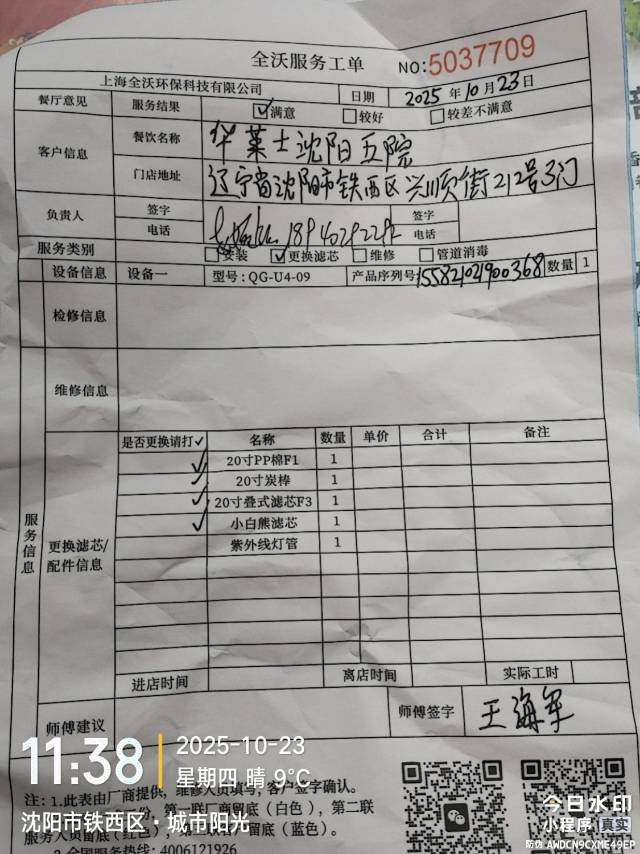 全沃服务工单 NO:5037709
上海全沃环保科技有限公司 日期 2025年10月23日
餐厅意见 服务结果 ☑满意 □较好 □较差不满意
客户信息 餐饮名称 华莱士沈阳五院
门店地址 辽宁省沈阳市铁西区兴顺街212号3门
负责人 签字 签字
电话 电话
服务类别 □安装 ☑更换滤芯 □维修 □管道消毒
设备信息 设备一 型号:QG-U4-09 产品序列号:155821021900368 数量 1
检修信息
维修信息
服务信息
更换滤芯/配件信息
是否更换请打✓ 名称 数量 单价 合计 备注
✓ 20寸PP棉F1 1
✓ 20寸炭棒 1
✓ 20寸叠式滤芯F3 1
✓ 小白熊滤芯 1
紫外线灯管 1
进店时间 离店时间 实际工时
师傅建议 师傅签字 王海军
11:38 2025-10-23
星期四 晴 9℃
沈阳市铁西区·城市阳光
注: 1.此表由厂商提供, 维修人员填写, 客户签字确认。
第一联厂商留底(白色), 第二联
服务人员留底(红色), 留底(蓝色)。
全国服务热线: 4006121926
今日水印
小程序 真实
防伪 AWDCN9CXME49EP